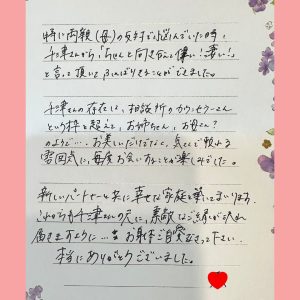 特に両親(母)の反対で悩んでいた時、
千津さんから「ちゃんと向き合って偉い!凄い!」
と言って頂いてふんばりきることができました。
千津さんの存在は、相談所のカウンセラーさん
という枠を超えて、お姉ちゃん、お母さん?
のようで…お美しいだけでなく、気さくで頼れる
雰囲気に、毎度お会いすることが楽しみでした。
新しいパートナーと共に幸せな家庭を築いてまいります。
これからも千津さんの元に、素敵なご縁が沢山
届きますように… お身体ご自愛なさって下さい。
本当にありがとうございました。